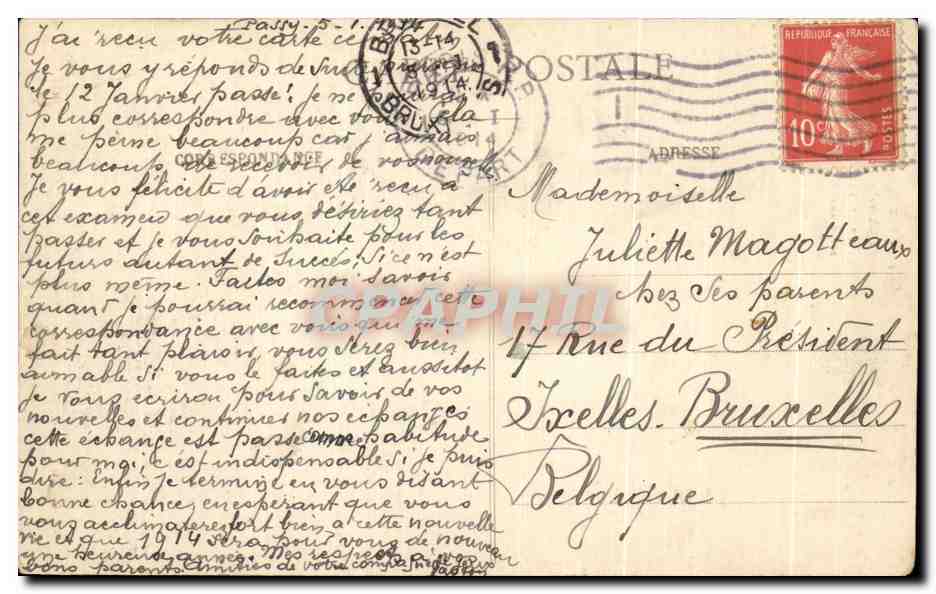 Passy-5-1.1914
J'ai reçu votre carte
Je vous y réponds de suite
le 12 Janvier passé! je ne
plus correspondre avec vous cela
me peine beaucoup car j'aimais
beaucoup de recevoir de vos nouvelles
Je vous félicite d'avoir été reçu a
cet examen que vous désiriez tant
passer et je vous souhaite pour les
futurs autant de succès! Si ce n'est
plus même. Faites moi savoir
quand je pourrai recommencer cette
correspondance avec vous qui me
fait tant plaisir, vous serez bien
aimable si vous le faites et aussitôt
je vous écrirai pour savoir de vos
nouvelles et continuer nos échanges
cette échange est passé comme habitude
pour moi, c'est indispensable si je puis
dire: Enfin je termine en vous disant
bonne chance, en espérant que vous
vous acclimaterez fort bien a cette nouvelle
vie et que 1914 sera pour vous de nouveau
une heureuse année. Mes respects a vos
bons parents. Amitiés de votre
CORRESPONDANCE
POSTALE
ADRESSE
REPUBLIQUE FRANÇAISE
10c
POSTES
13-14
1914
BRUX
DEPART
Mademoiselle
Juliette Magotteaux
chez ses parents
17 Rue du Président
Ixelles-Bruxelles
Belgique
CPAPHIL